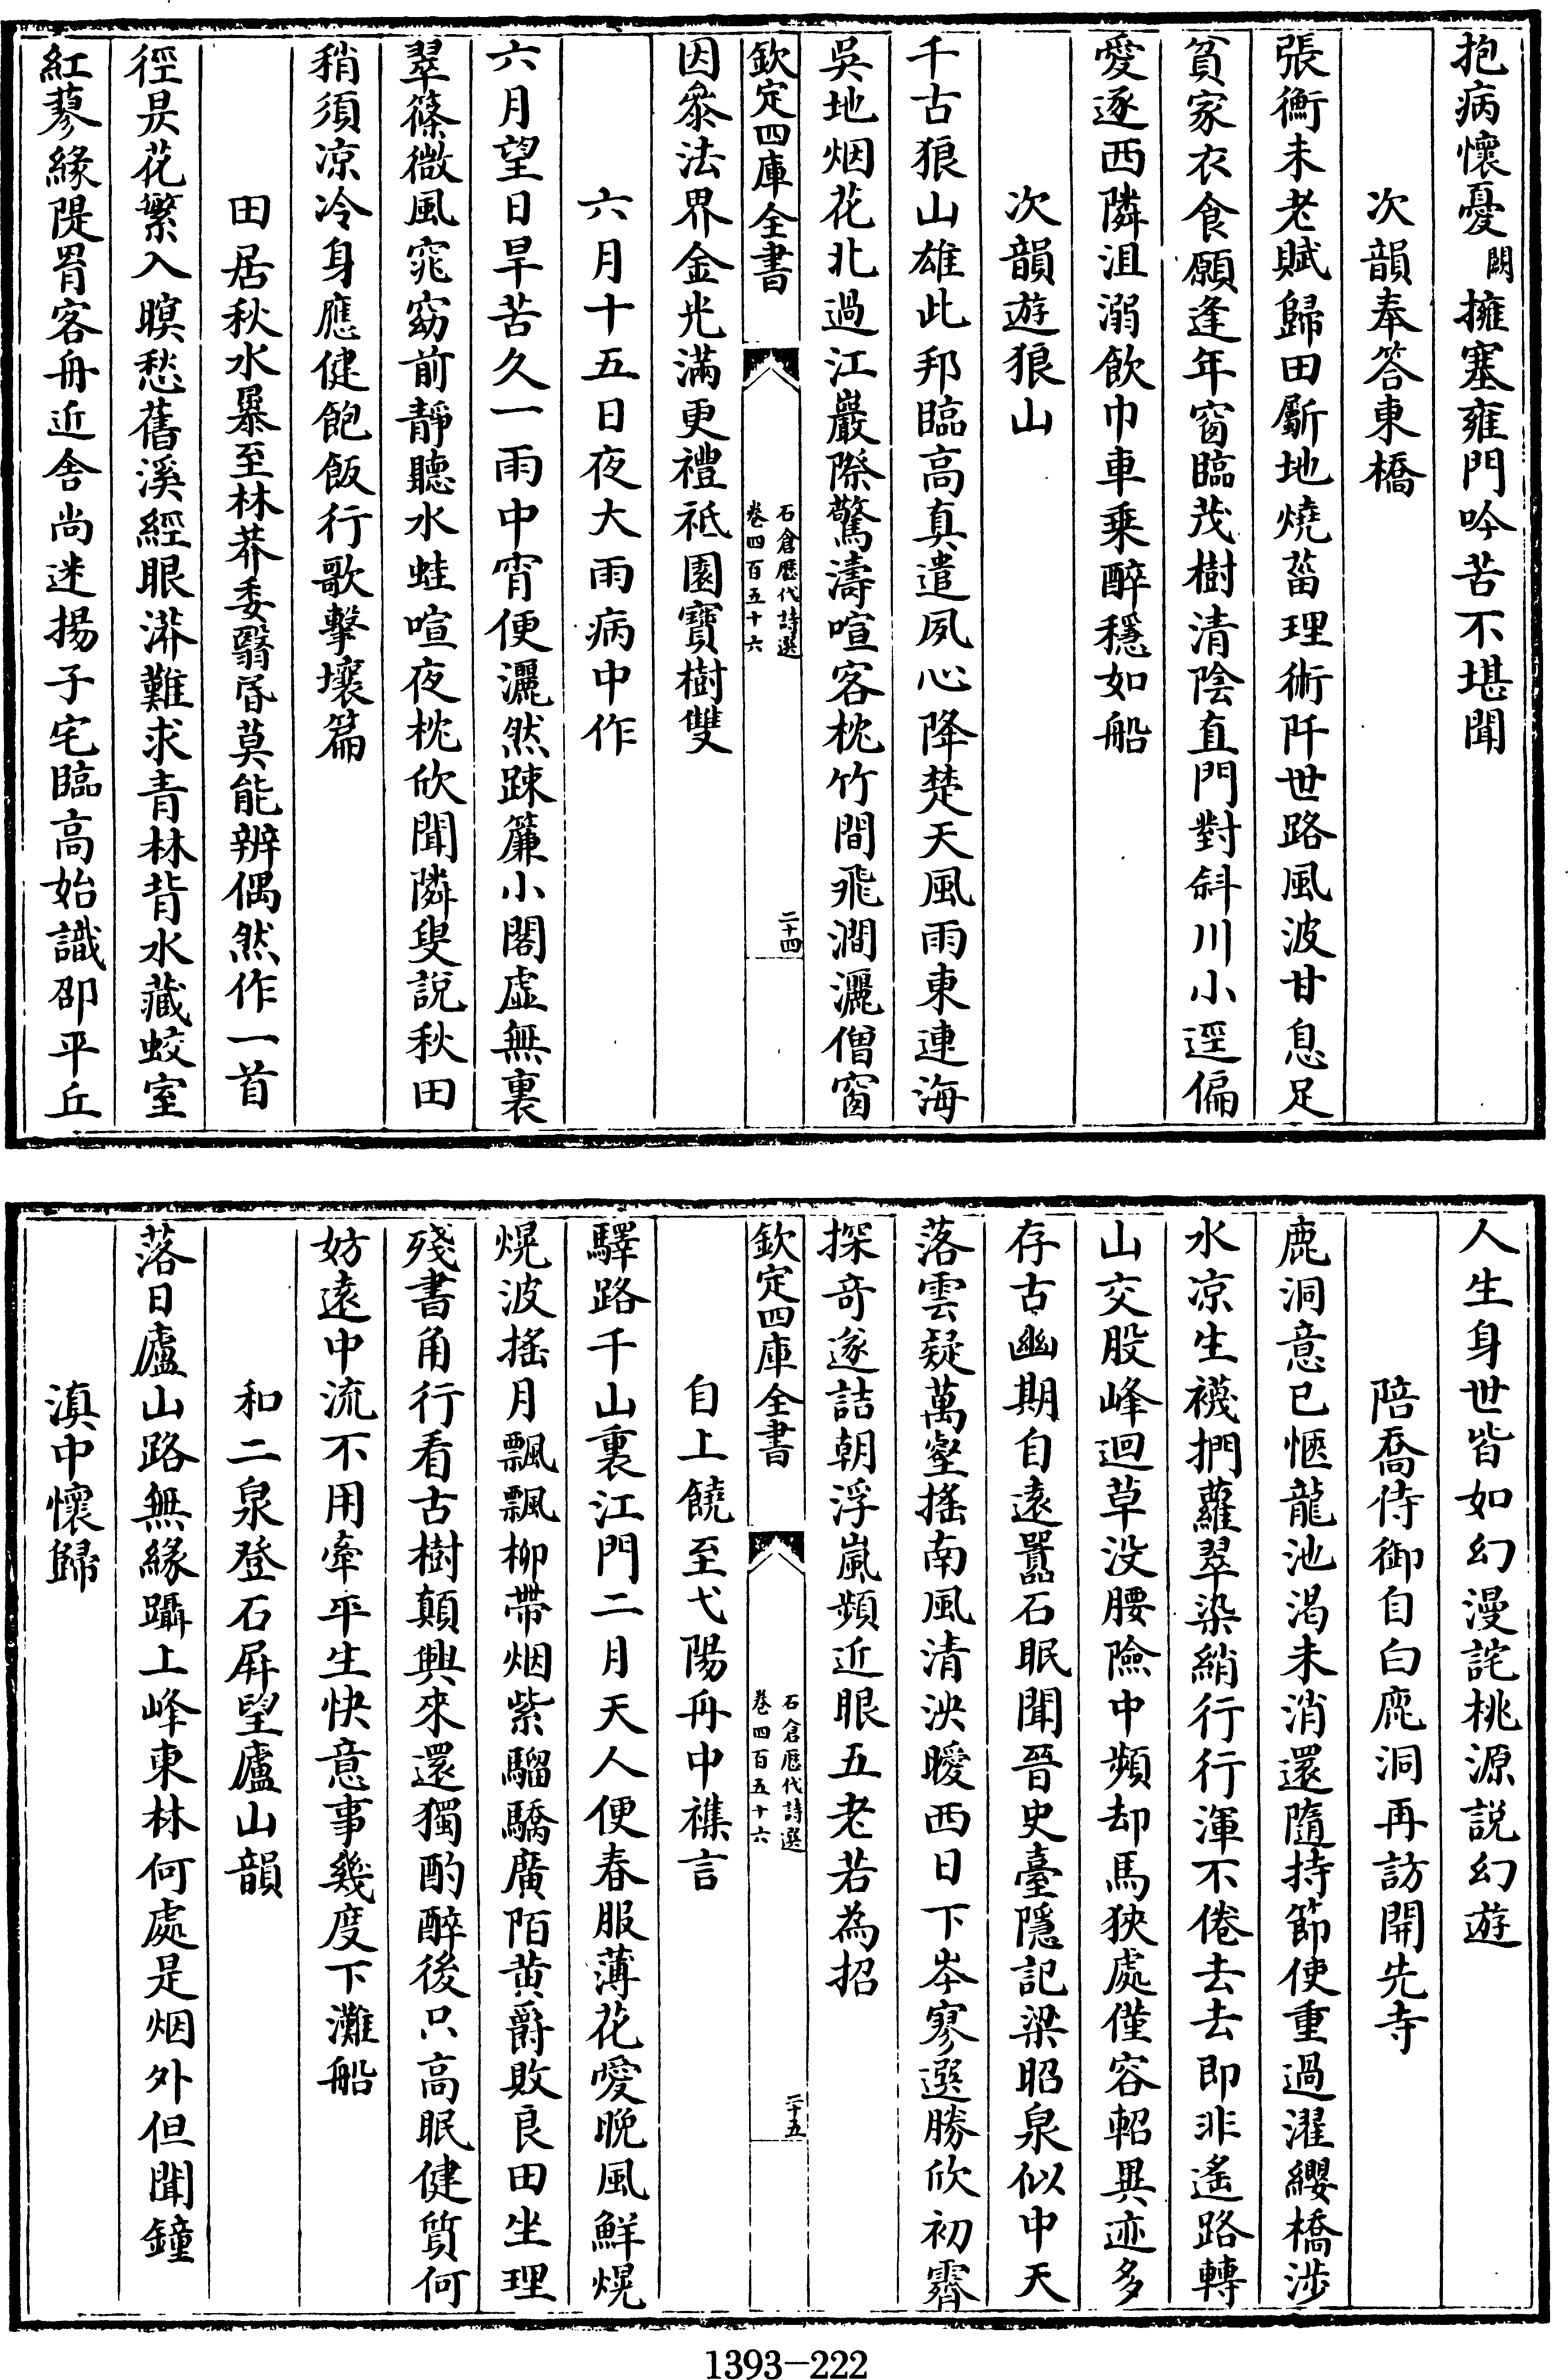 抱病懷憂闕擁塞雍門吟苦不堪聞
次韻奉答東橋
張衡未老賦歸田斸地燒菑理術阡世路風波甘息足
貧家衣食願逢年窗臨茂樹清陰直門對斜川小逕偏
愛逐西隣沮溺飲巾車乗醉穩如船
次韻遊狼山
千古狼山雄此邦臨高真遣夙心降楚天風雨東連海
吳地烟花北過江巖際驚濤喧客枕竹間飛澗灑僧窗
欽定四庫全書
石倉歷代詩選
卷四百五十六
二十四
因叅法界金光滿更禮祗園寶樹雙
六月十五日夜大雨病中作
六月望日旱苦久一雨中宵便灑然踈簾小閣虛無裏
翠篠微風窕窈前靜聽水蛙喧夜枕欣聞隣叟說秋田
稍須凉冷身應健飽飯行歌擊壤篇
田居秋水㬥至林莽委翳昏莫能辨偶然作一首
徑昃花繁入暝愁舊溪經眼漭難求青林背水藏蛟室
紅蓼緣隄罥客舟近舍尚迷揚子宅臨高始識邵平丘
人生身世皆如幻漫詫桃源説幻遊
陪喬侍御自白鹿洞再訪開先寺
鹿洞意已愜龍池渴未消還隨持節使重過濯纓橋涉
水凉生襪捫蘿翠染綃行行渾不倦去去即非遙路轉
山交股峰迴草没腰險中頻却馬狹處僅容軺異迹多
存古幽期自遠囂石眠聞晉史臺隱記梁昭泉似中天
落雲疑萬壑搖南風清泱曖西日下岑寥選勝欣初霽
探奇遂詰朝浮嵐頻近眼五老若為招
欽定四庫全書
石倉歷代詩選
卷四百五十六
二十五
自上饒至弋陽舟中襍言
驛路千山裏江門二月天人便春服薄花愛晚風鮮熀
熀波搖月飄飄柳帶烟紫騮驕廣陌黄爵敗良田坐理
殘書角行看古樹顛興來還獨酌醉後只高眠健質何
妨遠中流不用牽平生快意事幾度下灘船
和二泉登石屏望廬山韻
落日廬山路無緣躡上峰東林何處是烟外但聞鐘
滇中懷歸
1393-222